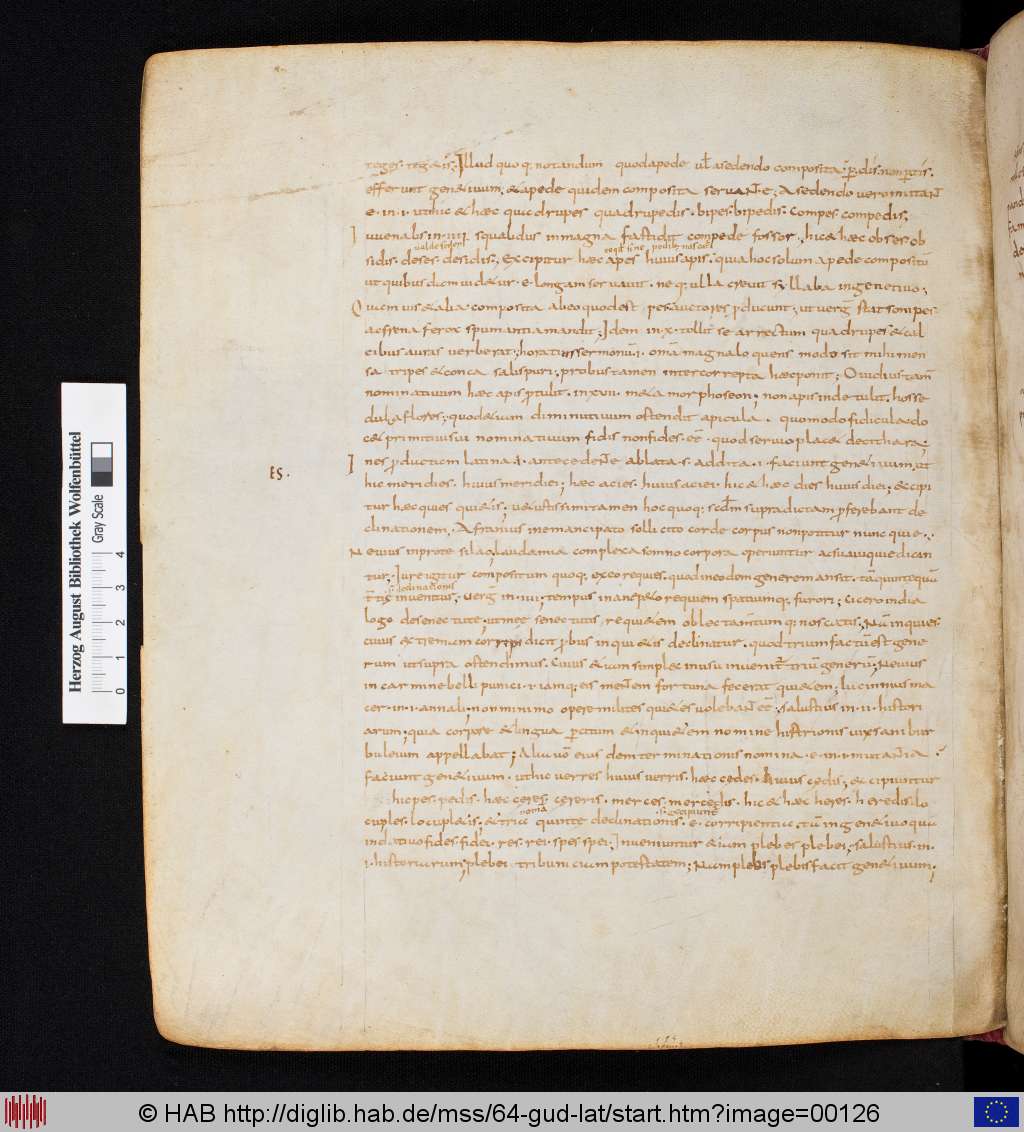 teges. teg&is. Illud quoq; notandum quod a pede ul̄ a sedendo composita
efferunt gen&iuum, & a pede quidem composita seruaNt .e; A sedendo uero mittaNt
.e. in .i. ut hic & hæc quadrupes quadrupedis. bipes. bipedis. Compes compedis,
Iuuenalis in .iiii. squalidus in magna fastidit compede fossor, hic & hæc obses ob
sidis. deses. desidis, Excipitur hæc apes huius apis. quia hoc solum a pede compositū
ut quibusdam uid&ur .e. longam seruauit. neq; ulla creuit syllaba in genetiuo;
Quamuis & alia composita ab eo quod est pes auctores pducunt; ut uerg̅ stat sonipes
ac frena ferox spumantia mandit; Idem in .x. tollit se arrectum quadrupes & cal
cibus auras uerberat; horatius sermonū .i. om̄a magna loquens modo sit mihi men
sa tripes & conca salis puri; probus tamen inter correpta hæc ponit; Ouidius tam̄
nominatiuum hæc apis protulit. in xuii. m&amorphoseon; non apis inde tulit. hosse
dula flores; quod &iam diminutiuum ostendit apicula. quomodo fidicula do
c& primitiui sui nominatiuum fidis non fides. eē. quod seruio plac& de cithara;
ES.
In es productam latina .&. antecedeNte ablata .s. addita .i. faciunt gen&iuum, ut
hic meridies. huius meridiei; hæc acies. huius aciei. hic & hæc dies huius diei; excipi
tur hæc ques qui&is; u&ustissimi tamen hoc quoq; scdm supradictam proferebant de
clinationem. Afranius in emancipato solli cito corde corpus non potitur nunc quie.
Neuius in protesilao, laudamia complexa somno corpora operiuntur ac suaui quie dican
tur. Iure igitur compositum quoq; ex eo requies. quod in eodem genere mansit. tā quintæ quā
inuentus, uerg̅ in .iiii; tempus inane p&o requiem spatiumq; furori; Cicero in dia
logo de senectute; ut meæ senectutis, requi&em oblectamentumq; noscatis; Nā inquies
cuius extremum corripi dicit probus in qui&is declinatur. quod trium factū est gene
rum ut supra ostendimus. Cuius &iam simplex in usu inuenit̄ triū generū; Neuius
in carmine belli punici .i. iamq; eis meNtem fortuna fecerat qui&em; lucinnius ma
cer .in .ii. annali; non minimo opere milites qui&es uolebaNt eē; salustius in .ii. histori
arum; quia corpore & lingua percitum & inqui&em nomine histrionis uix sani bur
buleium appellabat; Alia uō eius dem terminationis nomina .e. in .i. mutaNtia
faciunt gen&iuum. ut hic uerres huius uerris. hæc cedes. huius cędis; excipiuntur
hic pes. pedis. hæc ceres. cereris. merces. mercedis. hic & hæc heres. heredis. lo
cuples. locupl&is, & tria quintæ declinationis. e. corripientia, tā in gen&iuo quā
in datiuo fides. fidei. res. rei. spes spei. Inueniuntur &iam plebes plebei; salustius .in.
.i. historiarum; plebei tribuniciam potestatem; Nam plebs plebis facit gen&iuum,
Herzog August Bibliothek Wolfenbüttel
Gray Scale
0 1 2 3 4
© HAB http://diglib.hab.de/mss/64-gud-lat/start.htm?image=00126